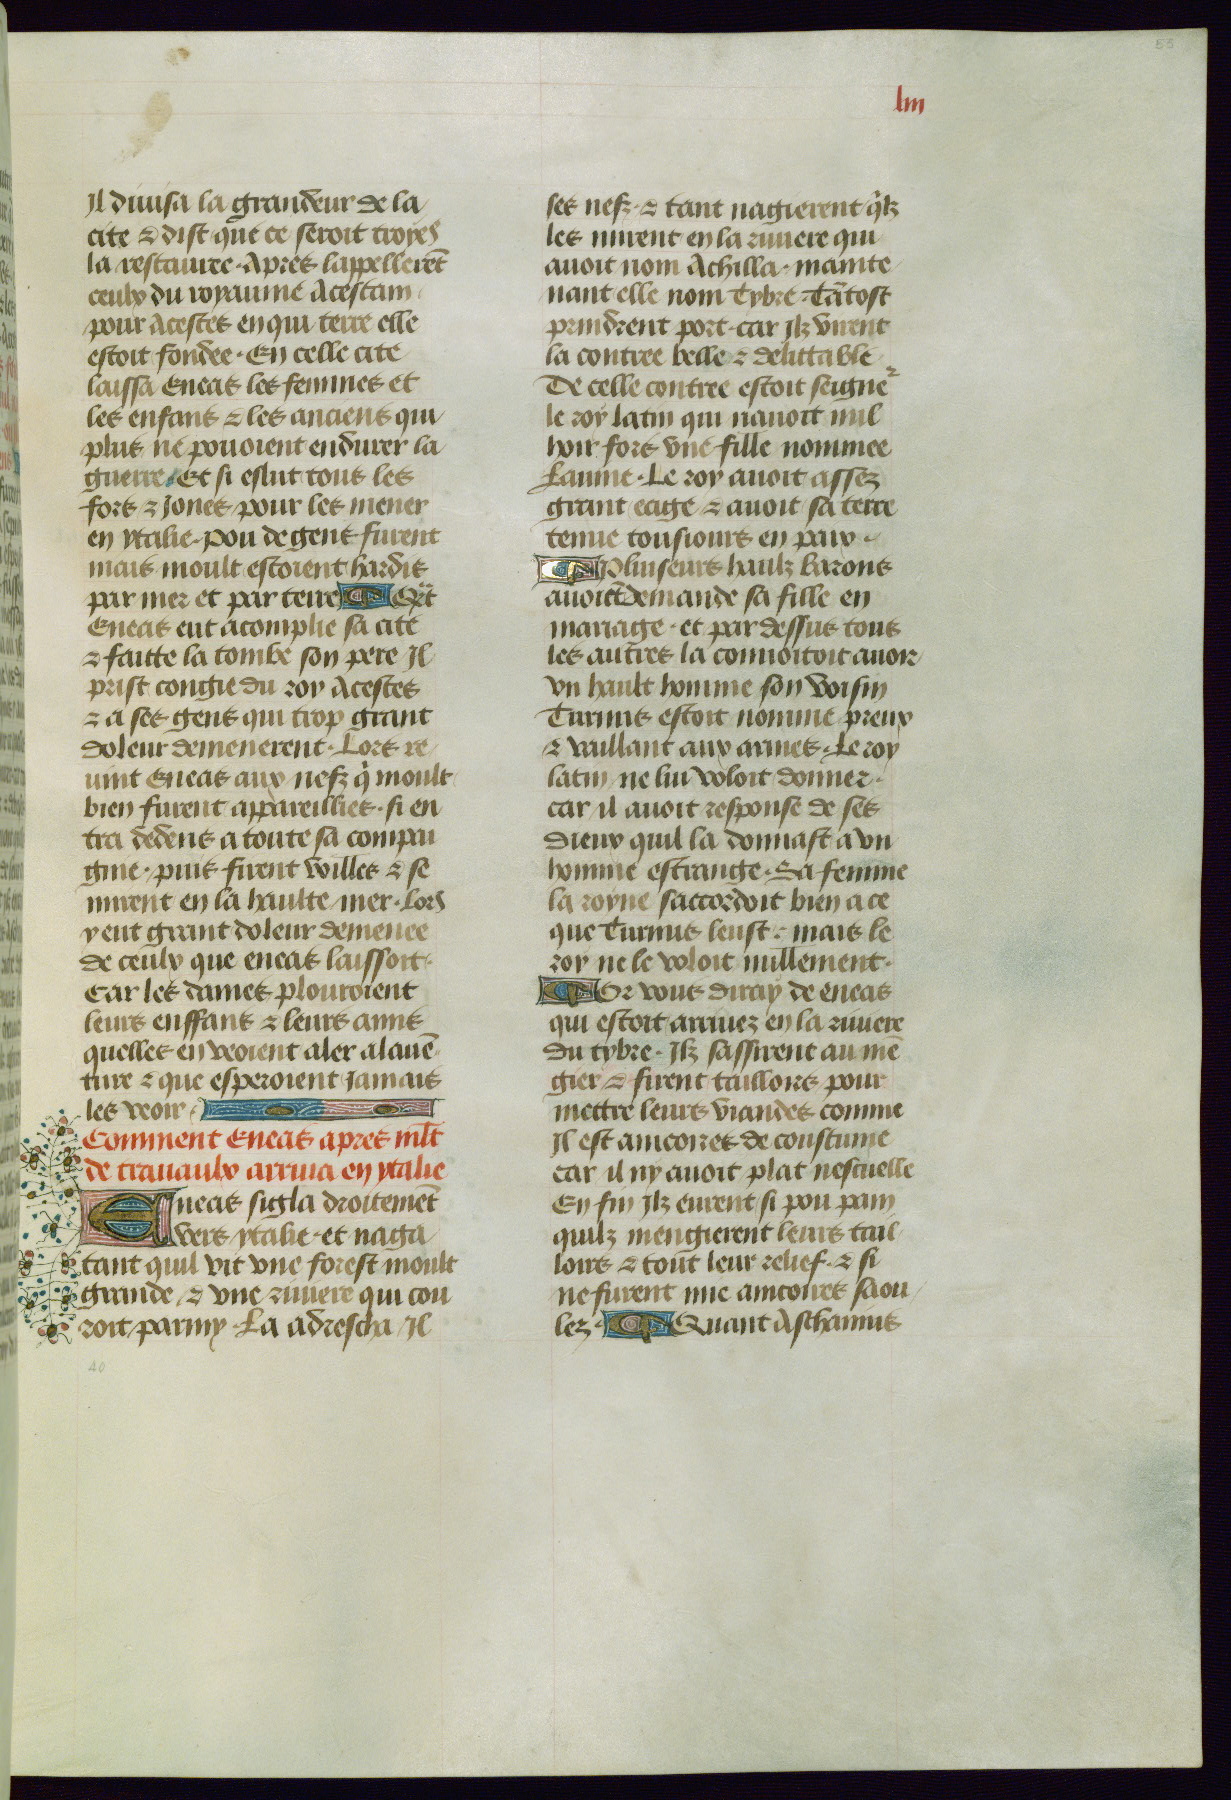 53
liii
Il diuisa la grandeur de la
cite ⁊ dist que ce seroit troyes
la restauree. Apres lappellerẽt
ceulx du royaume Acestam
pour Acestes en qui terre elle
estoit fondee. En celle cite
laissa Eneas les femmes et
les enfans ⁊ les anciens qui
plus ne pouoient endurer la
guerre. Et si eslut tous les
fors ⁊ Jones pour les mener
en ytalie. pou de gent furent
mais moult estoient hardis
par mer et par terre Qãt
Eneas eut acomplie sa cite
⁊ faitte la tombe son pere Il
prist congie du roy Acestes
⁊ a ses gens qui trop grant
doleur demenerent. Lors re
uint Eneas aux nefz q̃ moult
bien furent appareillies. si en
tra dedens a toute sa compai
gnie. puis firent voilles ⁊ se
mirent en la haulte mer. Lors
y eut grant doleur demenee
de ceulx que eneas laissoit.
Car les dames plouroient
leurs enffans ⁊ leurs amis
quelles en veoient aler alauẽ
ture ⁊ que esperoient Jamais
les veoir
Comment Eneas apres mlt
de trauaulx arriua en ytalie
Eneas sigla droitemẽt
vers ytalie. et naga
tant quil vit vne forest moult
grande ⁊ vne riuiere qui cou
roit parmy. La adrescha Il
40
ses nefz. ⁊ tant nagierent q̃lz
les mirent en la riuiere qui
auoit nom Achilla. mainte
nant elle nom Tybre. Tãtost
prindrent port. car Ilz virent
la contree belle ⁊ delittable
De celle contree estoit seigne
le roy latin qui nauoit nul
hoir fors vne fille nommee
Lauine. Le roy auoit assez
grant eage ⁊ auoit sa terre
tenue tousiours en paix.
Pluiseurs haulz barons
auoiẽt demande sa fille en
mariage. et par dessus tous
les autres la conuoitoit auoir
vn hault homme son voisin
Turnus estoit nomme preux
⁊ vaillant aux armes. Le roy
latin ne lui voloit donner.
car il auoit response de ses
dieux quil la donnast a vn
homme estrange. Sa femme
la royne saccordoit bien a ce
que Turnus leust. mais le
roy ne le voloit nullement.
Or vous diray de eneas
qui estoit arriuez en la riuiere
du tybre. Ilz sassirent au mẽ
gier ⁊ firent taillois pour
mettre leurs viandes comme
Il est aincores de coustume
Car il ny auoit plat nescuelle
En fin Ilz eurent si pou pain
quilz mengierent leurs tail
loirs ⁊ tout leur relief. ⁊ si
ne furent mie aincoires saou
lez. Quant Aschanius